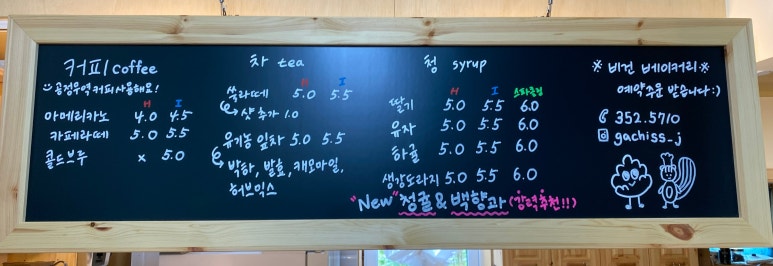 커피 coffee
공정무역 커피 사용해요!
H I
아메리카노 4.0 4.5
카페라떼 5.0 5.5
콜드브루 x 5.0
차 tea
H I
쑥라떼 5.0 5.5
샷 추가 1.0
유기농 잎차 5.0 5.5
박하, 발효, 캐모마일,
허브믹스
청 syrup
H I 스파클링
딸기 5.0 5.5 6.0
유자 5.0 5.5 6.0
하귤 5.0 5.5 6.0
생강도라지 5.0 5.5 6.0
"New" 청귤 & 백향과 (강력추천!!)
※ 비건 베이커리 ※
예약주문 받습니다 :)
352.5710
gachiss_j